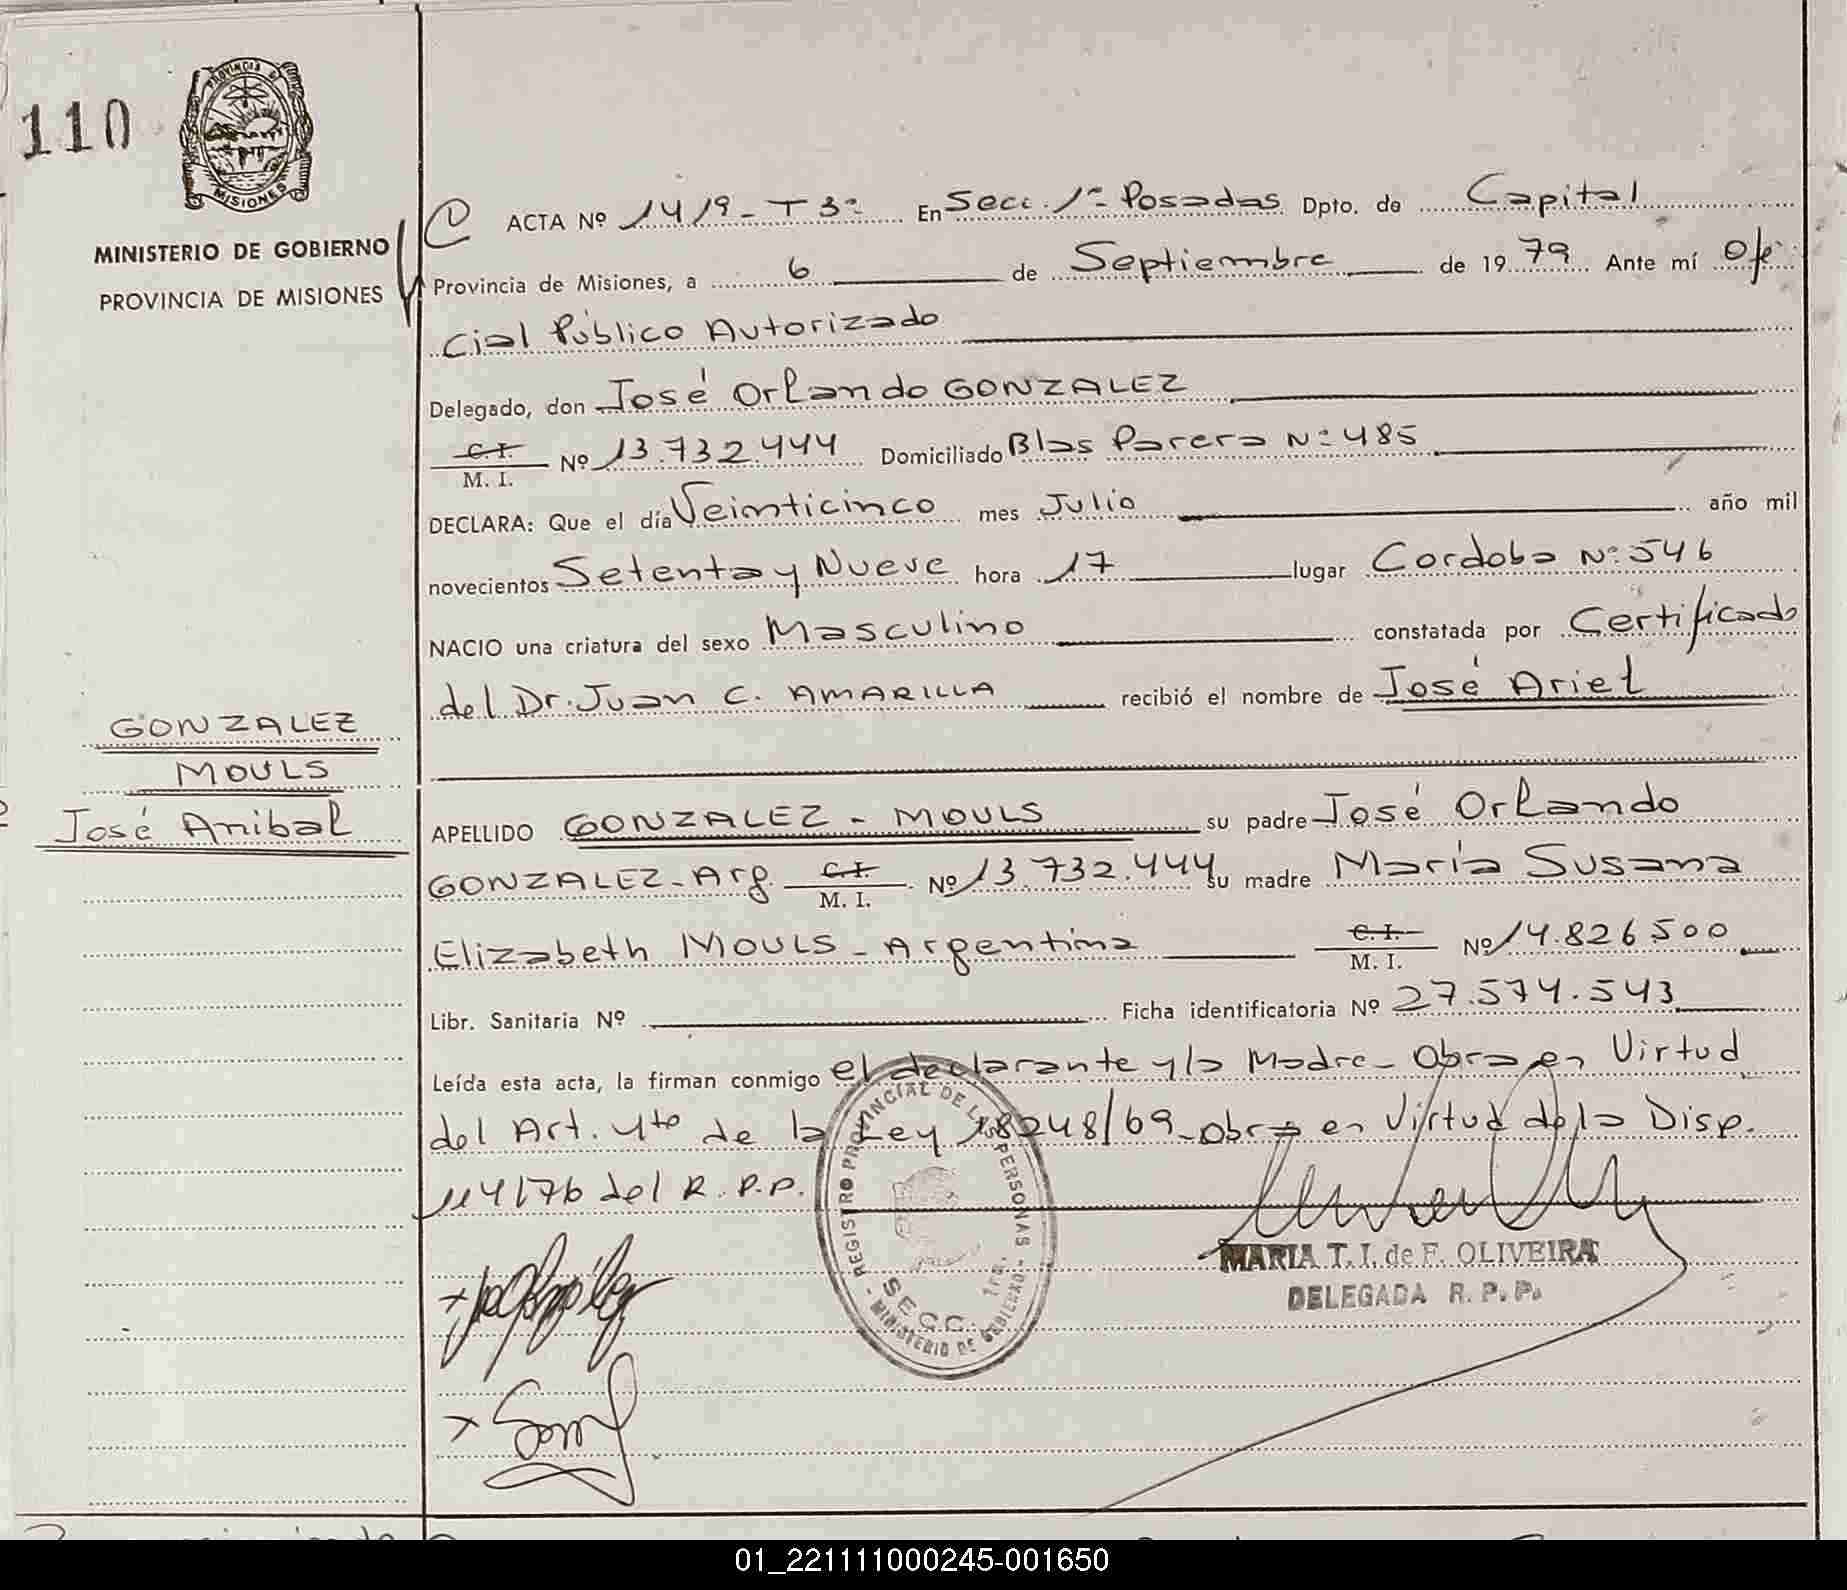 110
PROVINCIA DE
MISIONES
MINISTERIO DE GOBIERNO
PROVINCIA DE MISIONES
ACTA Nº 1419-T3º En Secc. 1ª Posadas Dpto. de Capital
Provincia de Misiones, a 6 de Septiembre de 1979 Ante mí Ofi
cial Público Autorizado
Delegado, don José Orlando GONZALEZ
C.I.
M. I. Nº 13.732.444 Domiciliado Blas Parera Nº 485
DECLARA: Que el día Veinticinco mes Julio año mil
novecientos Setenta y Nueve hora 17 lugar Cordoba Nº 546
NACIO una criatura del sexo Masculino constatada por Certificado
del Dr. Juan C. AMARILLA recibió el nombre de José Ariel
GONZALEZ
MOULS
José Anibal
APELLIDO GONZALEZ - MOULS su padre José Orlando
GONZALEZ-Arg C.I.
M. I. Nº 13.732.444 su madre María Susana
Elizabeth MOULS - Argentina C.I.
M. I. Nº 14.826.500
Libr. Sanitaria Nº Ficha identificatoria Nº 27.574.543
Leída esta acta, la firman conmigo el declarante y la Madre- Obra en Virtud
del Art. 4to de la Ley 18248/69-obra en Virtud de la Disp.
114/76 del R.P.P.
REGISTRO PROVINCIAL DE LAS PERSONAS
SECC. 1ra.
MINISTERIO DE GOBIERNO
MARIA T. I. de F. OLIVEIRA
DELEGADA R. P. P.
01_221111000245-001650